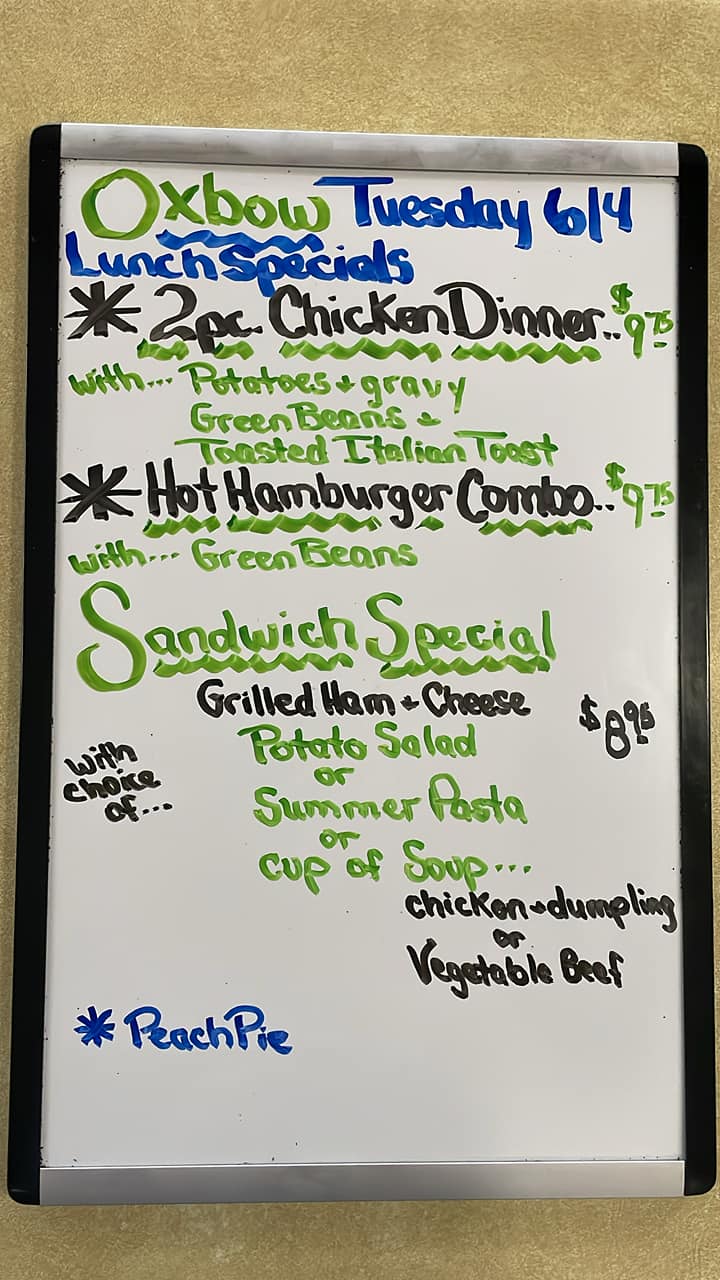 Oxbow Tuesday 6/4
Lunch Specials
* 2pc. Chicken Dinner.. $9.75
with... Potatoes + gravy
Green Beans +
Toasted Italian Toast
* Hot Hamburger Combo.. $9.75
with... Green Beans
Sandwich Special
Grilled Ham + Cheese $8.95
with choice of...
Potato Salad
or
Summer Pasta
or
cup of Soup...
chicken + dumpling
or
Vegetable Beef
* Peach Pie